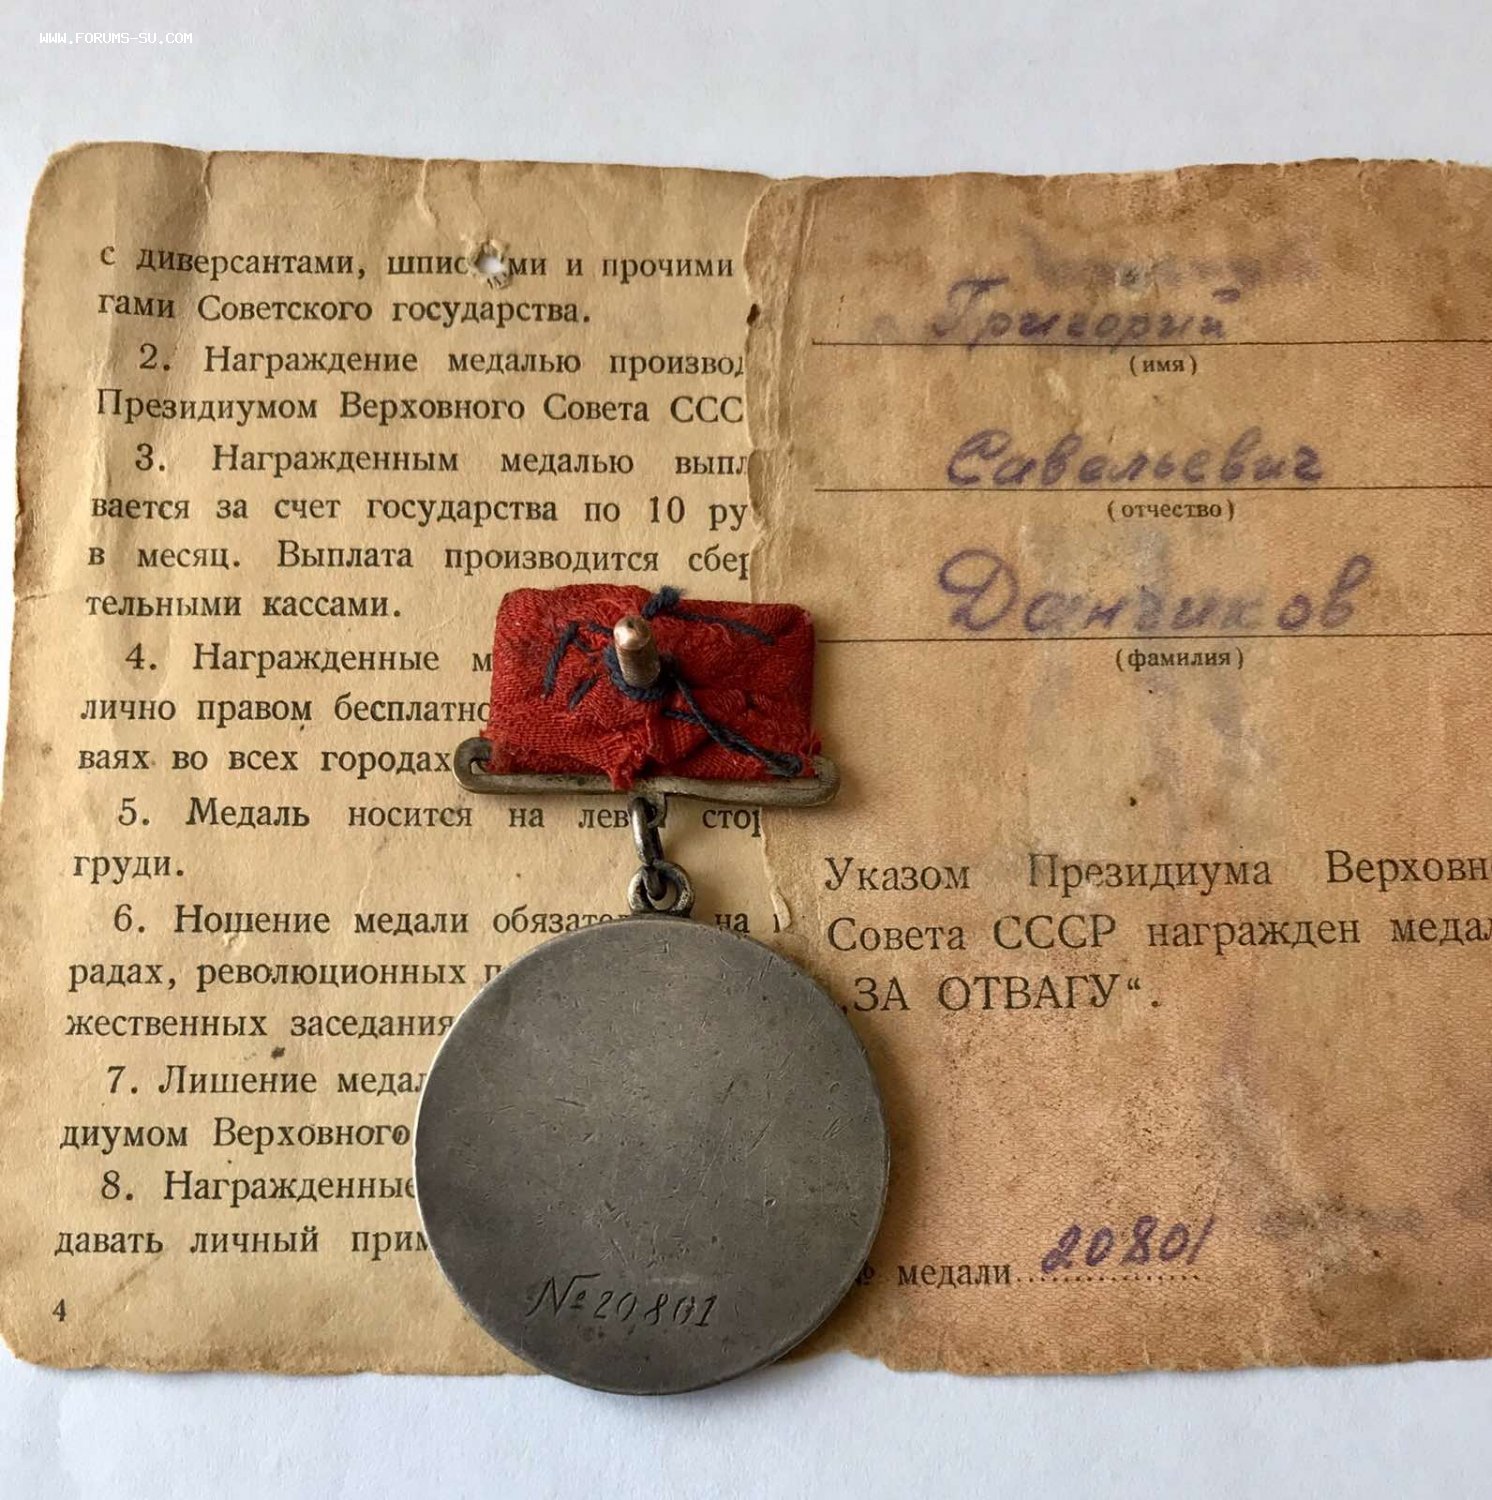 WWW.FORUMS-SU.COM
с диверсантами, и прочими
гами Советского государства.
2. Награждение медалью
Президиумом Верховного Совета ССС
3. Награжденным медалью
вается за счет государства по 10 ру
в месяц. Выплата производится
тельными кассами.
4. Награжденные м
лично правом
ваях во всех городах
5. Медаль носится на
груди.
6. Ношение медали на
радах, революционных
жественных заседания
7. Лишение
диумом Верховного
8. Награжденные
давать личный
4
Григорий
(имя)
Савельевич
(отчество)
Данчиков
(фамилия)
Указом Президиума Верховн
Совета СССР награжден медал
„ЗА ОТВАГУ“.
№ медали 20801
№ 20801